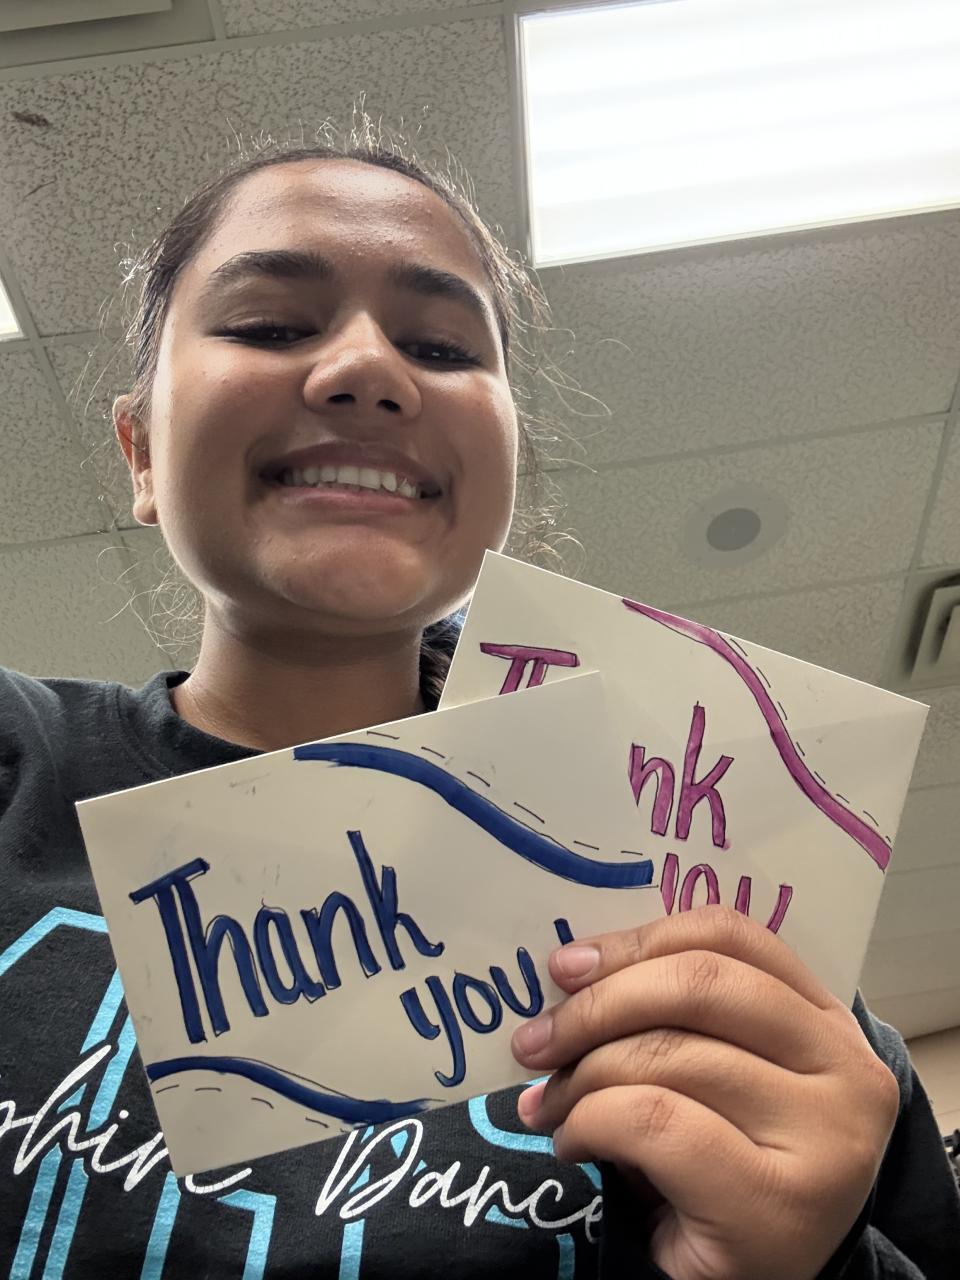 Thank
you!
T nk
you
phin Dance